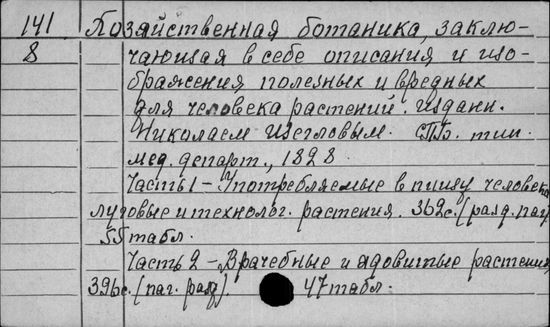 141 Хозяйственная ботаника, заклю-
8 чающая в себе описания и изо-
бражения полезных и вредных
для человека растений. издан.
Николаем Щегловым. СПб. тип.
мед. департ., 1828.
Часть 1 - Употребляемые в пищу человека
луговые и технолог. растения. 362с. (разд. паг.)
55 табл.
Часть 2 - Врачебные и ядовитые растения,
396с. (паг. разд). 47 табл.